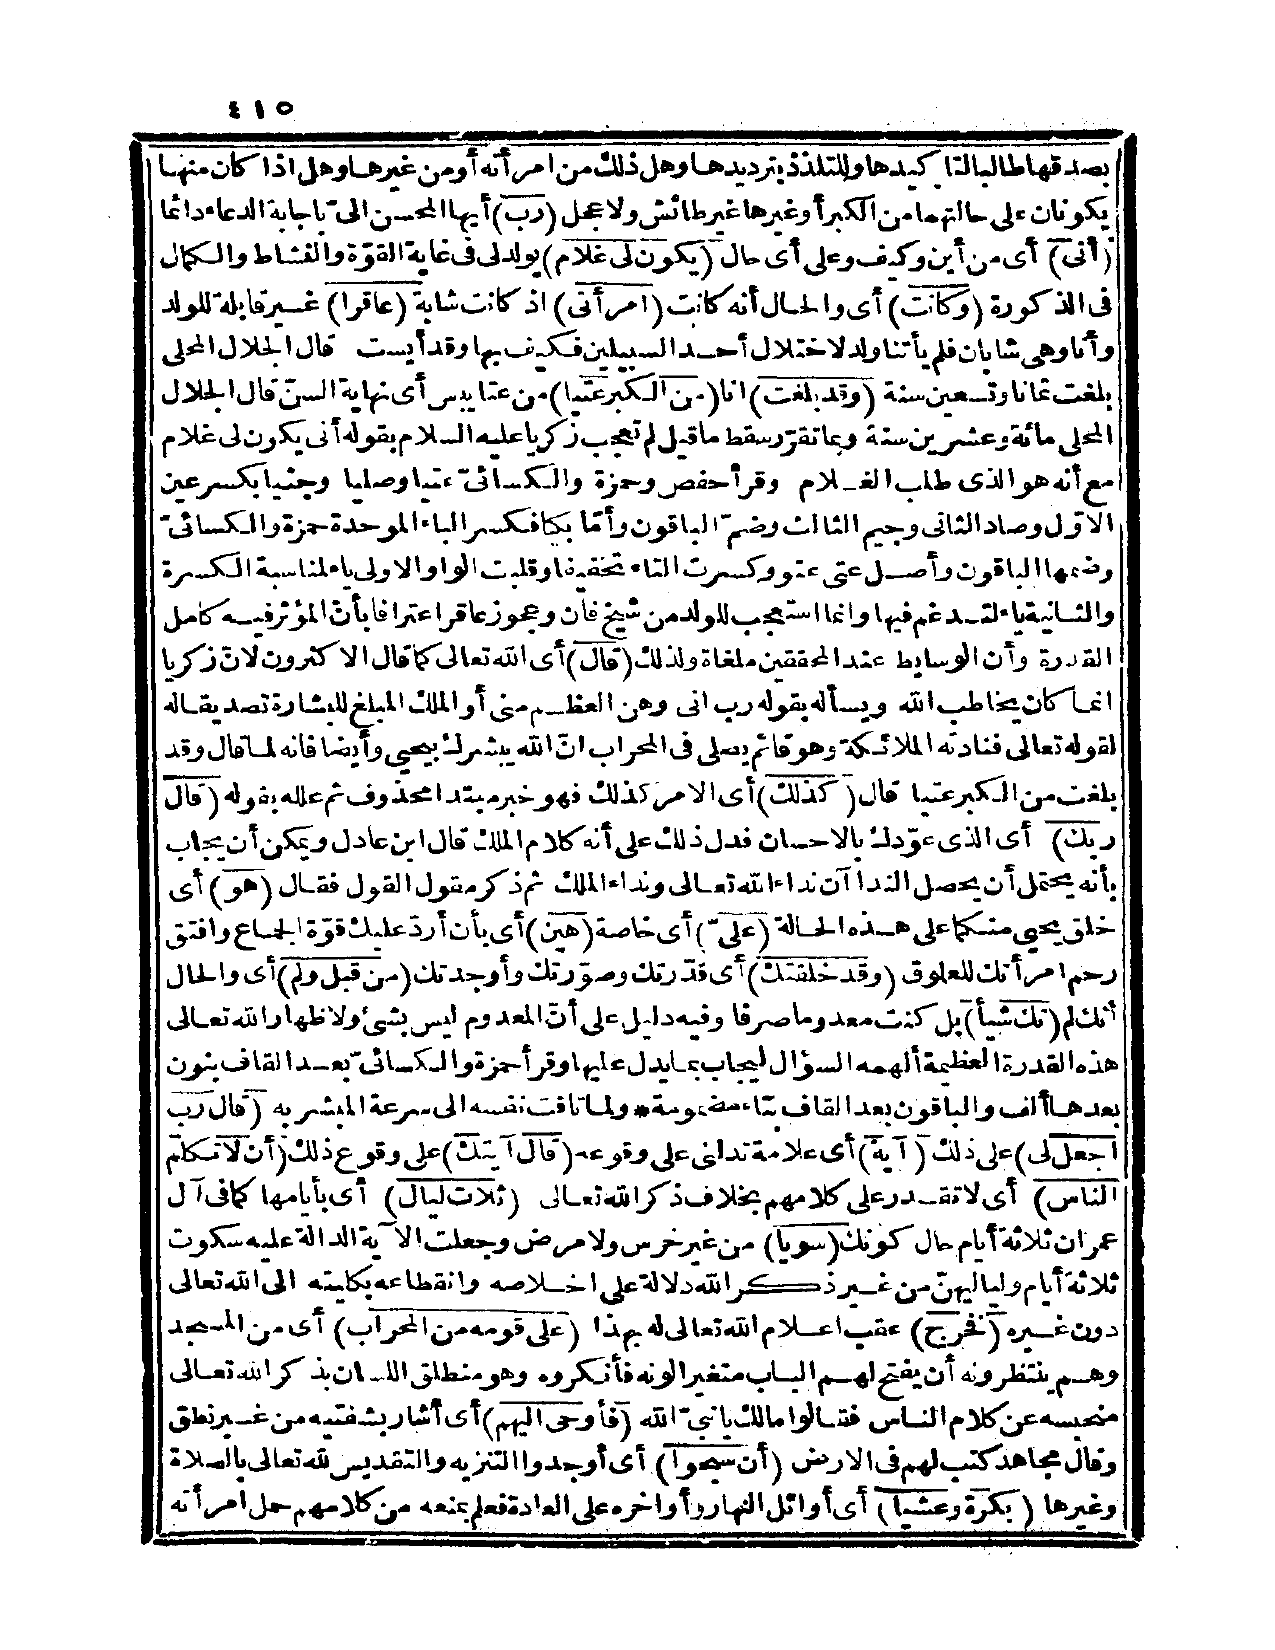 ٤١٥
بصدقها طالبا لتأكيدها وللتلذذ بترديدها وهل ذلك من امرأته أومن غيرها وهل اذا كان منهما
يكونان على حالتهما من الكبر أوغيرها غير طائش ولا عجل (رب) أيها المحسن الىّ باجابة الدعاء دائما
(أنى) أى من أين وكيف وعلى أى حال (يكون لى غلام) يولد لى فى غاية القوّة والنشاط والكمال
فى الذكورة (وكانت) أى والحال أنه كانت (امرأتى) اذ كانت شابة (عاقرا) غير قابلة للولد
وأنا وهى شابان فلم يأتنا ولد لاختلال أحد السبيلين فكيف بها وقد أيست قال الجلال المحلى
بلغت ثمانا وتسعين سنة (وقد بلغت) انا (من الكبر عتيا) من عتا يبس أى نهاية السنّ قال الجلال
المحلى مائة وعشرين سنة وبما تقرّر سقط ما قيل لم تعجب زكريا عليه السلام بقوله أنى يكون لى غلام
مع أنه هو الذى طلب الغلام وقرأ حفص وحمزة والكسائىّ عتيا وصليا وجثيا بكسر عين
الاوّل وصاد الثانى وجيم الثالث وضمّ الباقون وأمّا بكيا فكسر الباء الموحدة حمزة والكسائىّ
وضمها الباقون وأصل عتى عتوو وكسرت التاء تخفيفا وقلبت الواو الاولى ياء لمناسبة الكسرة
والثانية ياء لتدغم فيها وانما استعجب للولد من شيخ فان وعجوز عاقر اعترافا بأنّ المؤثر فيه كامل
القدرة وأن الوسايط عند المحققين ملغاة ولذلك (قال) أى الله تعالى كما قال الاكثرون لانّ زكريا
انما كان يخاطب الله ويسأله بقوله رب انى وهن العظم منى أو الملك المبلغ للبشارة تصديقا له
لقوله تعالى فنادته الملائكة وهو قائم يصلى فى المحراب انّ الله يبشرك بيحيى وأيضا فانه لما قال وقد
بلغت من الكبر عتيا قال (كذلك) أى الامر كذلك فهو خبر مبتدا محذوف ثم علله بقوله (قال
ربك) أى الذى عوّدك بالاحسان فدل ذلك على أنه كلام الملك قال ابن عادل ويمكن أن يجاب
بأنه يحتمل أن يحصل الندا آن نداء الله تعالى ونداء الملك ثم ذكر مقول القول فقال (هو) أى
خلق يحيى منكما على هذه الحالة (علىّ) أى خاصة (هين) أى بأن أردّ عليك قوّة الجماع وافتق
رحم امرأتك للعلوق (وقد خلقتك) أى قدّرتك وصوّرتك وأوجدتك (من قبل ولم) أى والحال
أنك لم (تك شيأ) بل كنت معدوما صرفا وفيه دليل على أنّ المعدوم ليس بشئ ولاظهار الله تعالى
هذه القدرة العظيمة ألهمه السؤال ليجاب بما يدل عليها وقرأ حمزة والكسائىّ بعد القاف بنون
بعدها ألف والباقون بعد القاف بتاء مضمومة * ولما تاقت نفسه الى سرعة المبشر به (قال رب
اجعل لى) على ذلك (آية) أى علامة تدلنى على وقوعه (قال آيتك) على وقوع ذلك (أن لا تكلم
الناس) أى لا تقدر على كلامهم بخلاف ذكر الله تعالى (ثلاث ليال) أى بأيامها كما فى آل
عمران ثلاثة أيام حال كونك (سويا) من غير خرس ولا مرض وجعلت الآية الدالة عليه سكوت
ثلاثة أيام ولياليهنّ من غير ذكر الله دلالة على اخلاصه وانقطاعه بكليته الى الله تعالى
دون غيره (فخرج) عقب اعلام الله تعالى له بهذا (على قومه من المحراب) أى من المسجد
وهم ينتظرونه أن يفتح لهم الباب متغيرا لونه فأنكروه وهو منطلق اللسان بذكر الله تعالى
منحبسه عن كلام الناس فقالوا مالك يا نبىّ الله (فأوحى اليهم) أى أشار بشفتيه من غير نطق
وقال مجاهد كتب لهم فى الارض (أن سبحوا) أى أوجدوا التنزيه والتقديس لله تعالى بالصلاة
وغيرها (بكرة وعشيا) أى أوائل النهار وأواخره على العادة فعلم بمنعه من كلامهم حمل امرأته